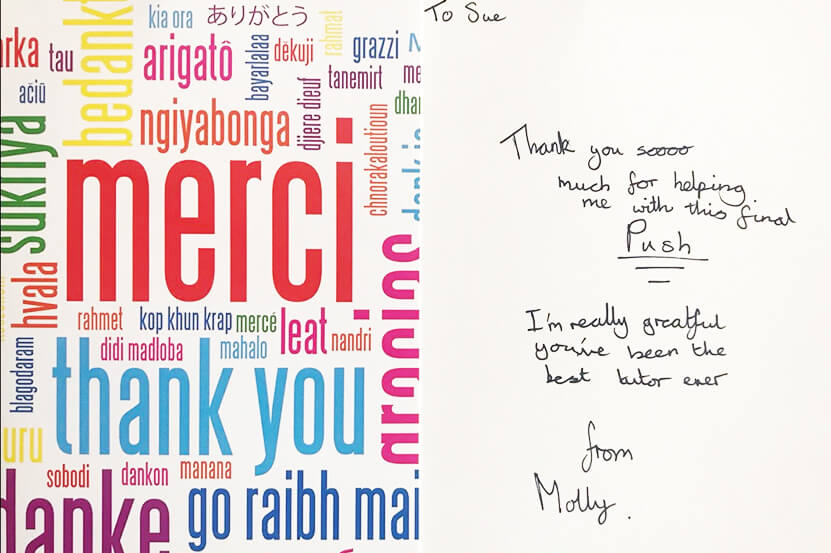 kia ora
ありがとう
rahmat
arka
tau
bedankt
arigatô
bayarlalaa
děkuji
grazzi
tanemirt
me
ačiū
dha
ngiyabonga
djiere dieuf
chnorakaloutioun
merci
hvala
rahmet
kop khun krap
mercé
leat
nandri
gracias
didi madloba
mahalo
blagodaram
thank you
uru
sobodi
dankon
manana
danke
go raibh mai
To Sue
Thank you soooo
much for helping
me with this final
Push
I'm really greatful
you've been the
best tutor ever
from
Molly.